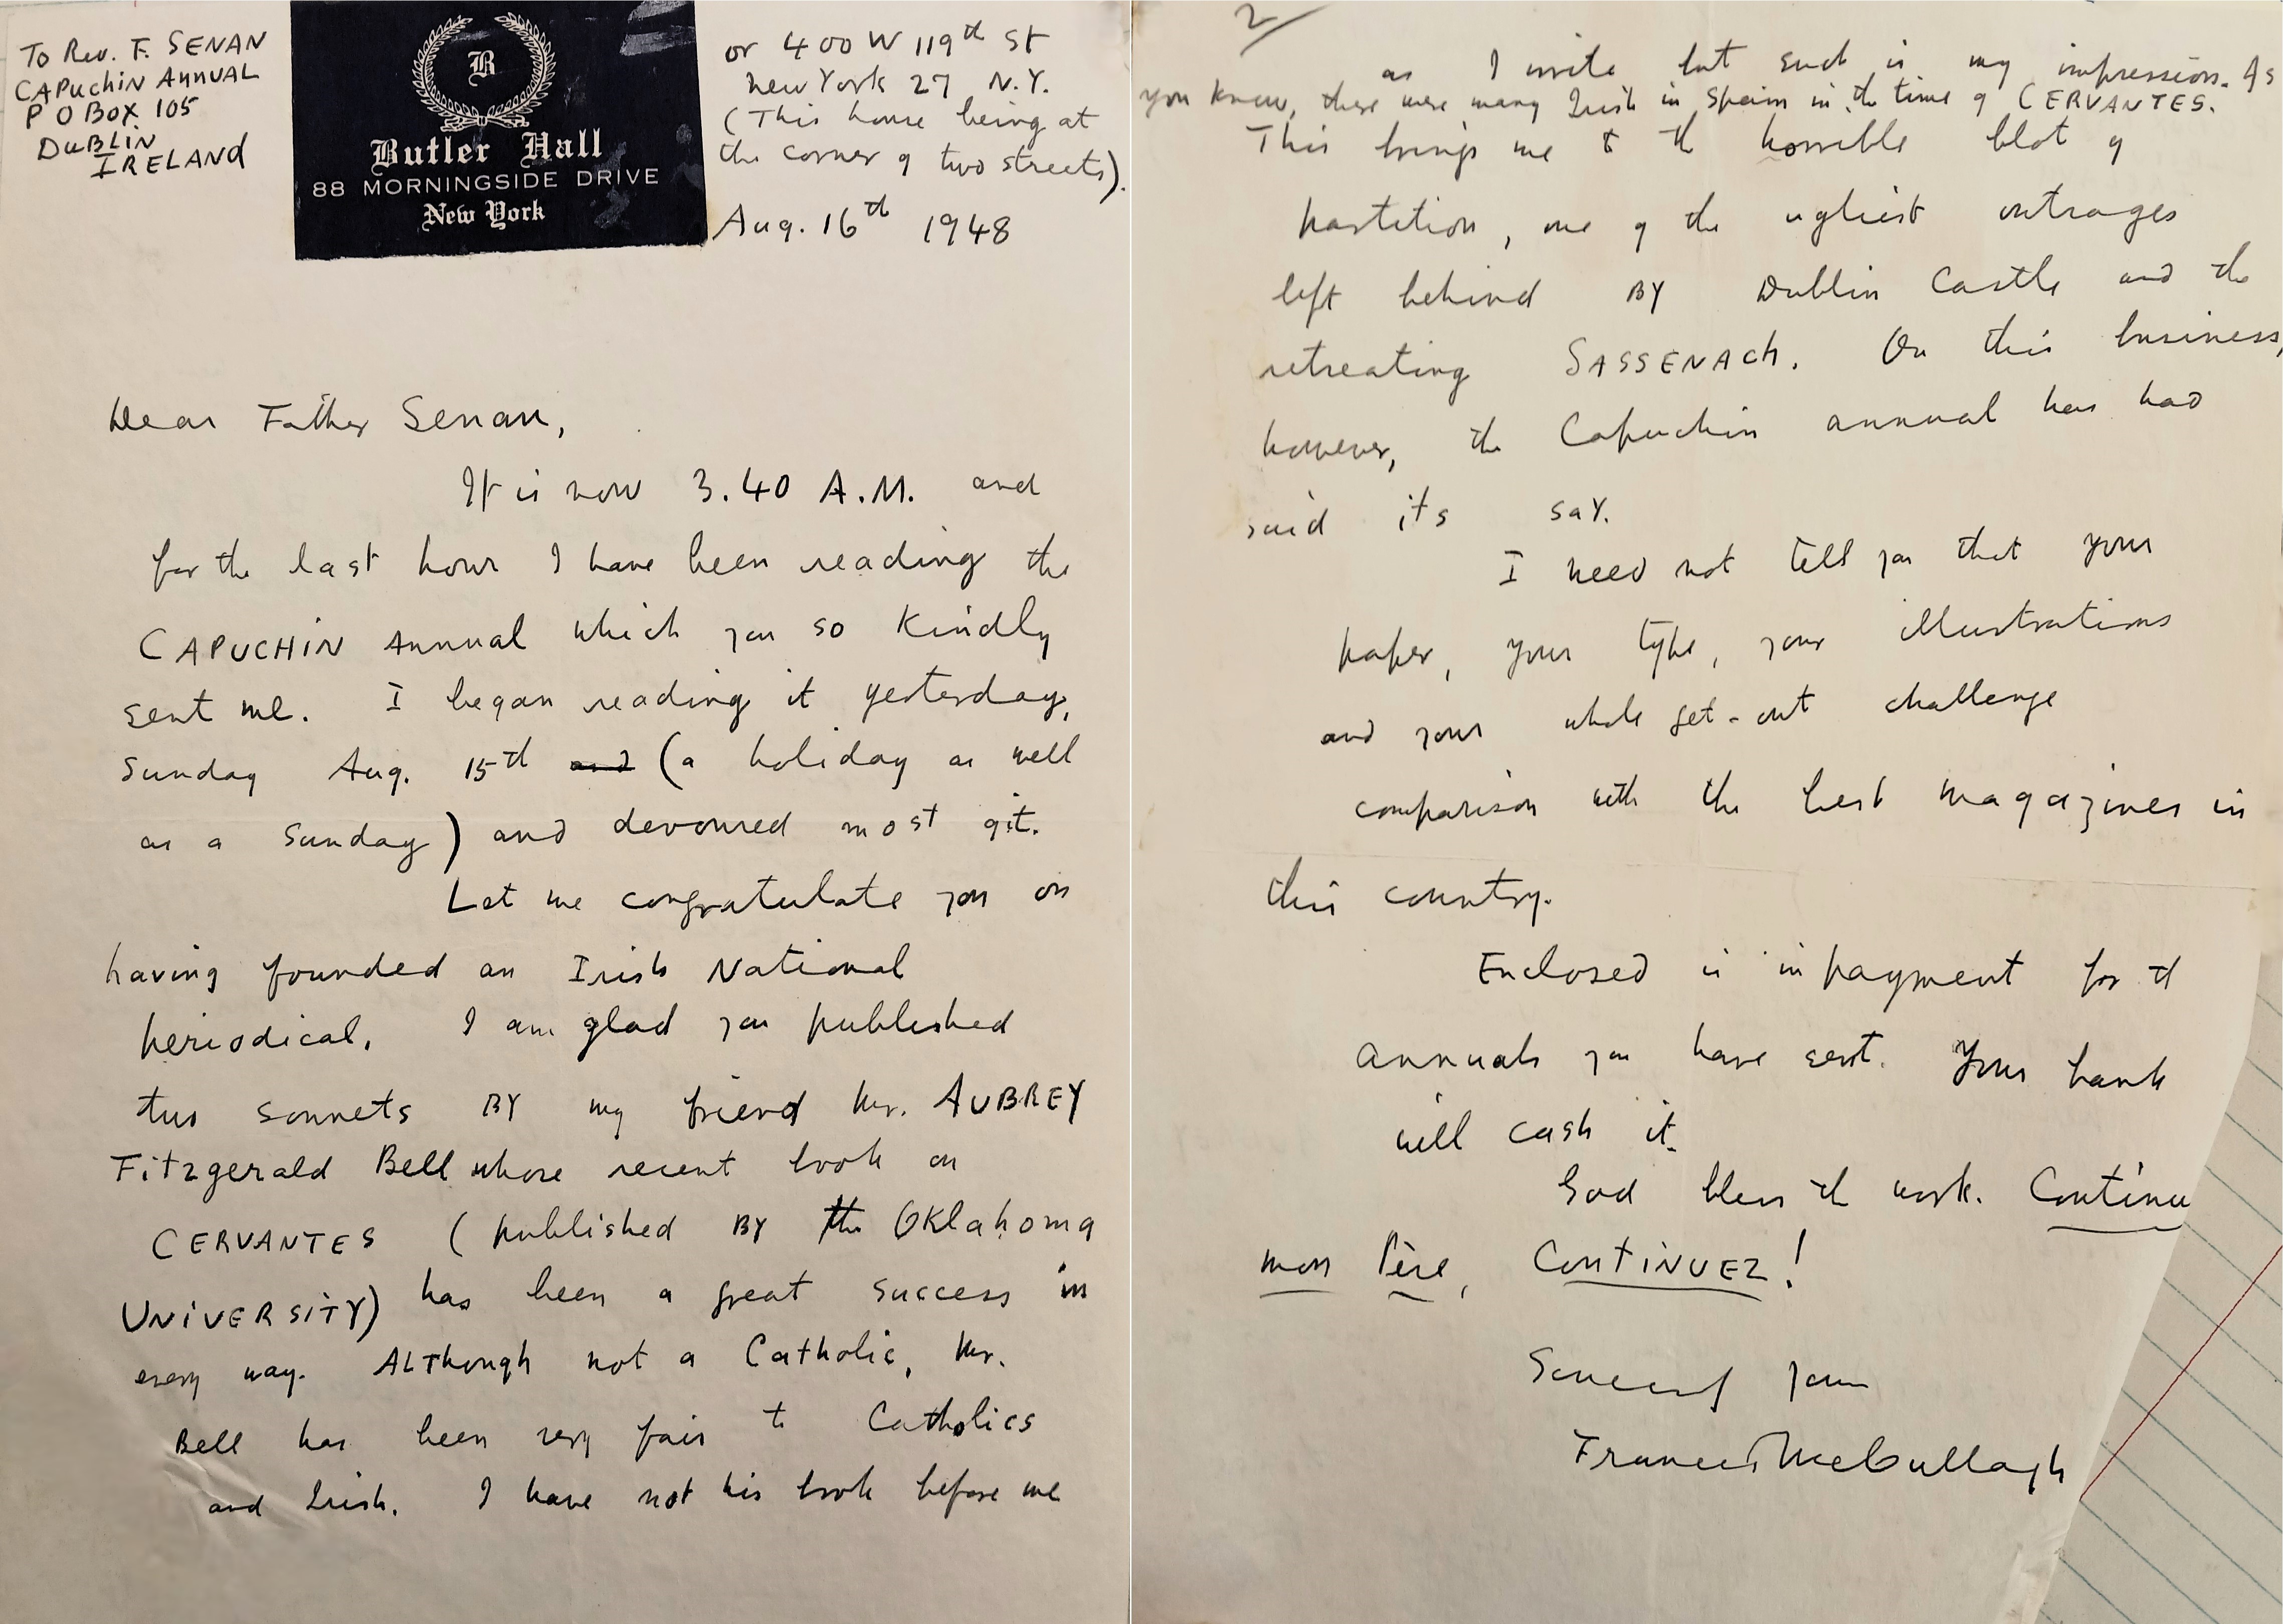 To Rev. F. SENAN
CAPUCHIN ANNUAL
P O BOX 105
DUBLIN
IRELAND
B
Butler Hall
88 MORNINGSIDE DRIVE
New York
or 400 W 119th St
New York 27 N.Y.
(This house being at
the corner of two streets).
Aug. 16th 1948
Dear Father Senan,
It is now 3.40 A.M. and
for the last hour I have been reading the
CAPUCHIN Annual which you so kindly
sent me. I began reading it yesterday,
Sunday Aug. 15th and (a holiday as well
as a Sunday) and devoured most of it.
Let me congratulate you on
having founded an Irish National
periodical. I am glad you published
two sonnets BY my friend Mr. AUBREY
Fitzgerald Bell whose recent book on
CERVANTES (published BY the Oklahoma
UNIVERSITY) has been a great success in
every way. Although not a Catholic, Mr.
Bell has been very fair to Catholics
and Irish. I have not his book before me
2
as I write but such is my impression. As
you know, there were many Irish in Spain in the time of CERVANTES.
This brings me to the horrible blot of
partition, one of the ugliest outrages
left behind BY Dublin Castle and the
retreating SASSENACH. On this business,
however, the Capuchin annual has had
said its say.
I need not tell you that your
paper, your type, your illustrations
and your whole get-out challenge
comparison with the best magazines in
this country.
Enclosed is in payment for the
annuals you have sent. Your bank
will cash it.
God bless the work. Continu
mon Père, CONTINUEZ!
Sincerely yours
Francis McCullagh